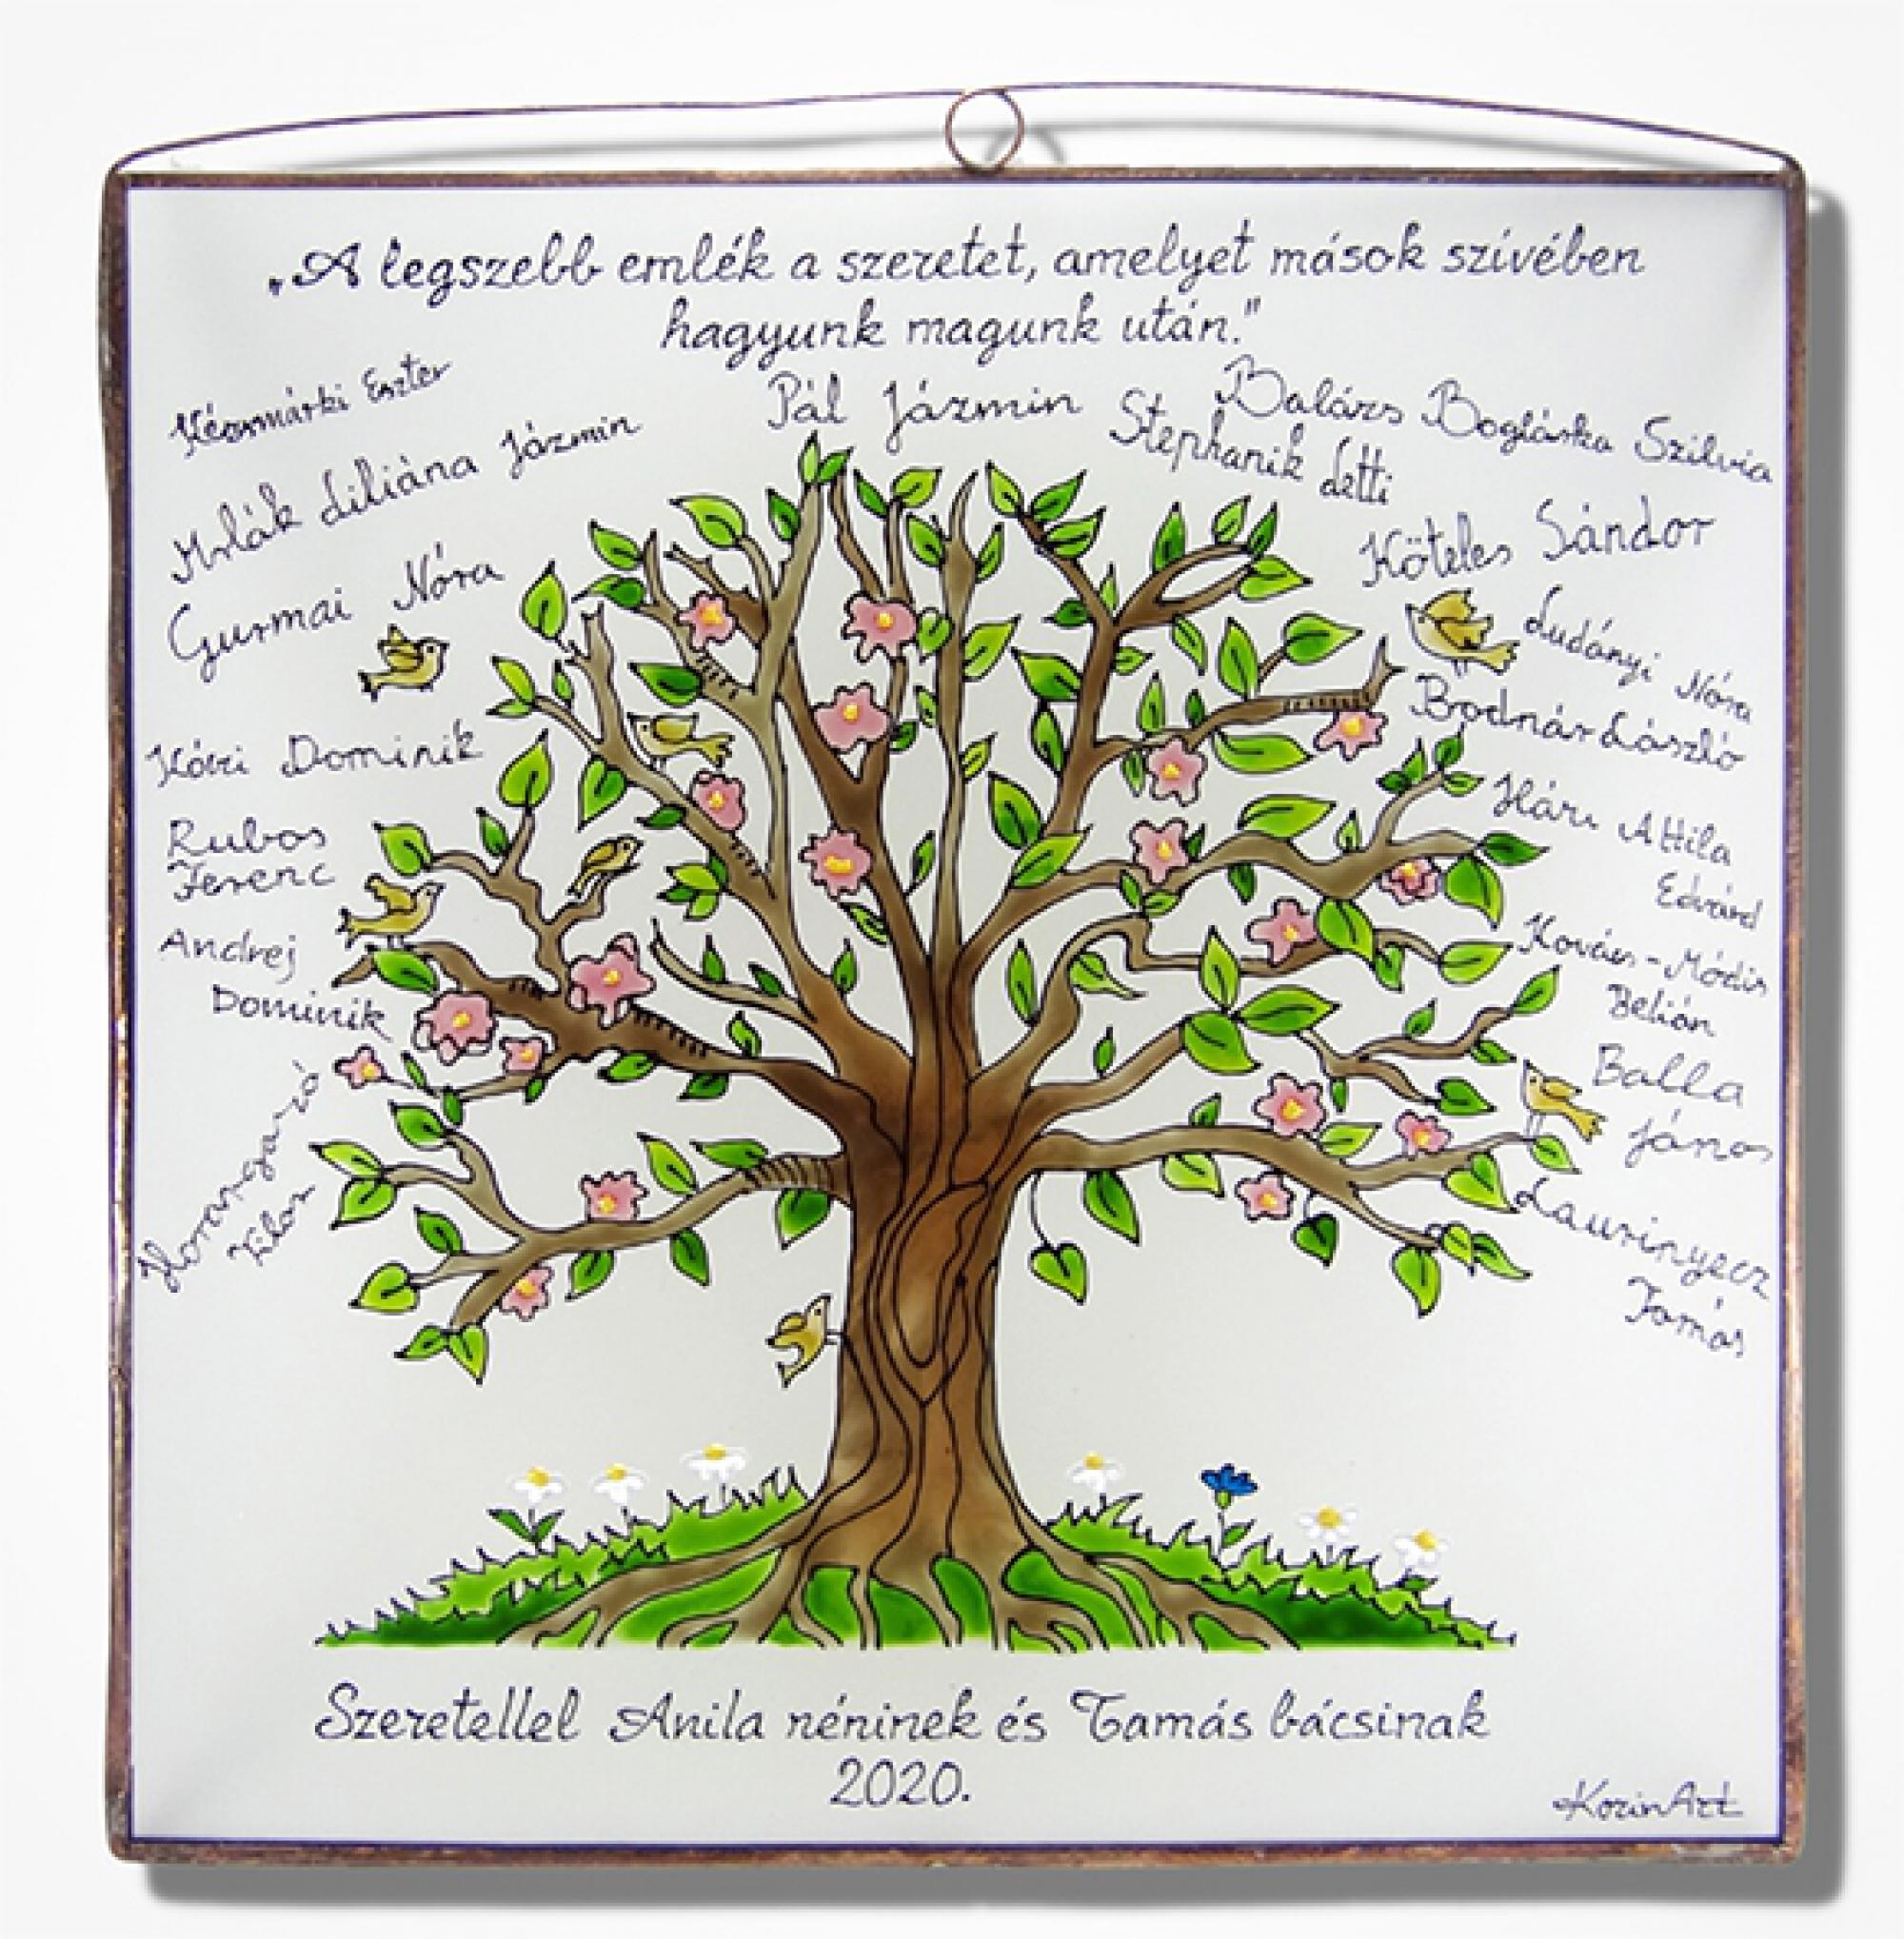 „A legszebb emlék a szeretet, amelyet mások szívében
hagyunk magunk után."
Késmárki Eszter
Mrlák Liliána Jázmin
Gurmai Nóra
Kóti Dominik
Rubos
Ferenc
Andrej
Dominik
Pál Jázmin
Stephanik Letti
Balázs Boglárka Szilvia
Köteles Sándor
Ludányi Nóra
Bodnár László
Hári Attila
Edvárd
Kovács-Módis
Belián
Balla
János
Laurinyecz
Tamás
Szeretellel Anila néninek és Tamás bácsinak
2020.
KorinArt